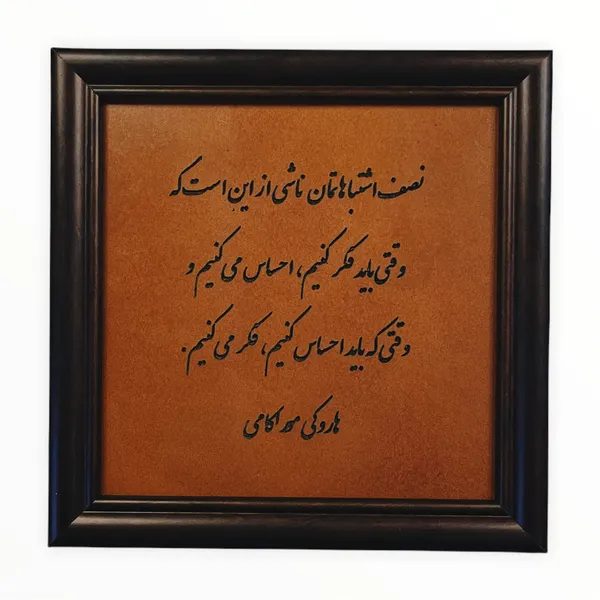 نصف اشتباهاتمان ناشی از این است که
وقتی باید فکر کنیم، احساس می کنیم و
وقتی که باید احساس کنیم، فکر می کنیم.
هاروکی موراکامی